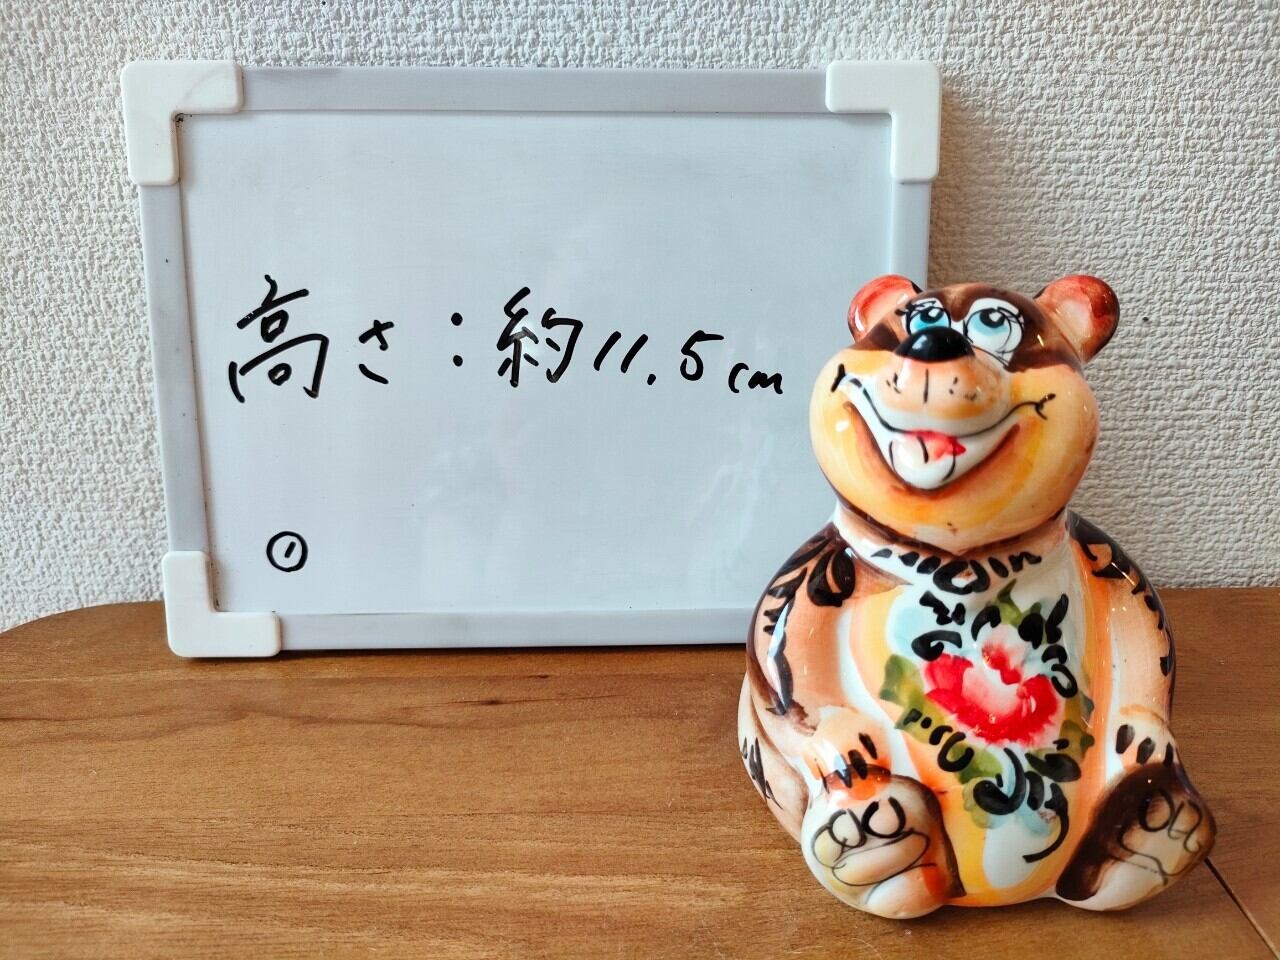 高さ:約11.5cm
①